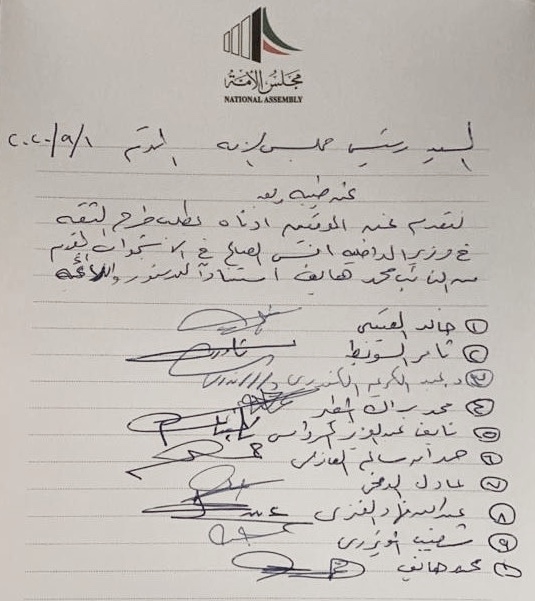 مجلس الأمة
NATIONAL ASSEMBLY
السيد رئيس مجلس الأمه المحترم ٢٠٢٠/٩/١
تحيه طيبه وبعد
نتقدم نحن الموقعين ادناه بطلب طرح الثقه
في وزير الداخليه انس الصالح في الاستجواب المقدم
من النائب محمد هايف استناداً للدستور واللائحه
١ خالد العتيبي
٢ ثامر السويط
٣ د. عبدالكريم الكندري
٤ محمد براك المطير
٥ نايف عبدالعزيز المرداس
٦ حمدان سالم العازمي
٧ عادل الدمخي
٨ عبدالله فهاد العنزي
٩ شعيب المويزري
١٠ محمد هايف